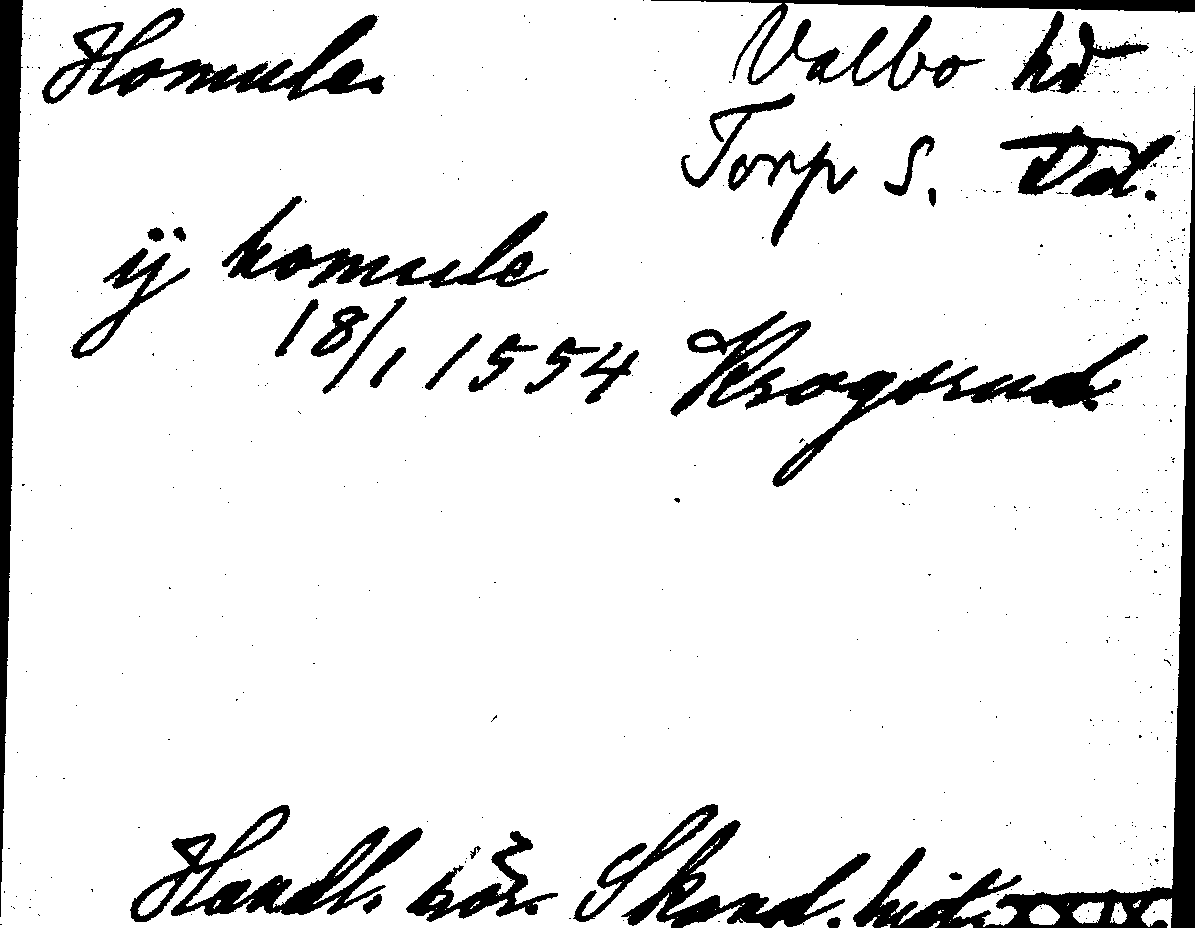 Homule. Valbo hd
Torp S. Dal.
ij homule
18/1 1554 Krogsrud.
Handl. rör. Skand. hist. XXIX.